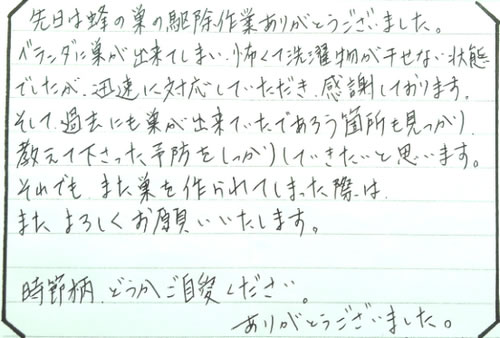 先日は蜂の巣の駆除作業ありがとうございました。
ベランダに巣が出来てしまい、怖くて洗濯物が干せない状態
でしたが、迅速に対応していただき、感謝しております。
そして、過去にも巣が出来ていたであろう箇所も見つかり、
教えて下さった予防をしっかりしていきたいと思います。
それでも、また巣を作られてしまった際は、
またよろしくお願いいたします。
時節柄、どうかご自愛ください。
ありがとうございました。